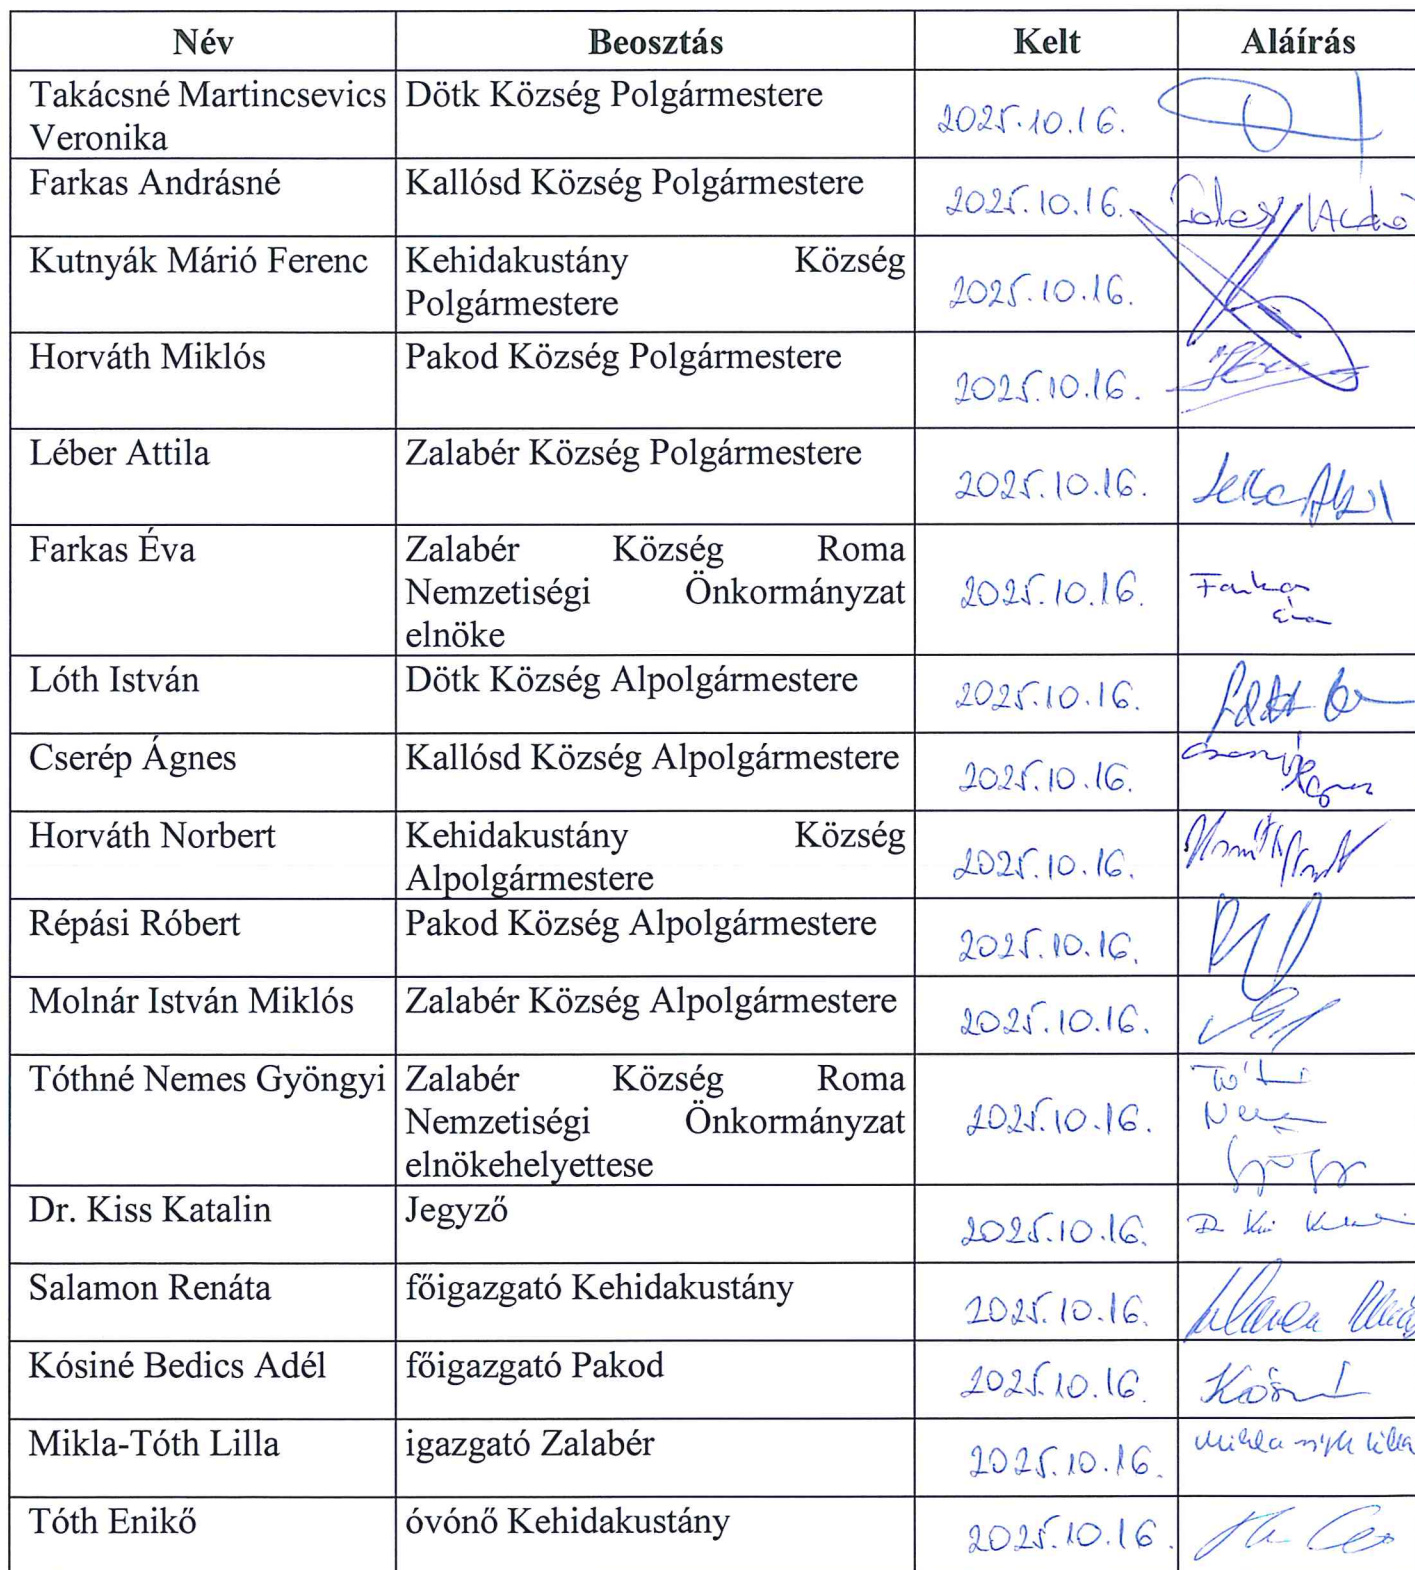 Név Beosztás Kelt Aláírás
Takácsné Martincsevics Dötk Község Polgármestere 2025.10.16.
Veronika
Farkas Andrásné Kallósd Község Polgármestere 2025.10.16.
Kutnyák Márió Ferenc Kehidakustány Község 2025.10.16.
Polgármestere
Horváth Miklós Pakod Község Polgármestere 2025.10.16.
Léber Attila Zalabér Község Polgármestere 2025.10.16.
Farkas Éva Zalabér Község Roma
Nemzetiségi Önkormányzat 2025.10.16. Farkas
elnöke Éva
Lóth István Dötk Község Alpolgármestere 2025.10.16.
Cserép Ágnes Kallósd Község Alpolgármestere 2025.10.16.
Horváth Norbert Kehidakustány Község 2025.10.16.
Alpolgármestere
Répási Róbert Pakod Község Alpolgármestere 2025.10.16.
Molnár István Miklós Zalabér Község Alpolgármestere 2025.10.16.
Tóthné Nemes Gyöngyi Zalabér Község Roma
Nemzetiségi Önkormányzat 2025.10.16.
elnökehelyettese
Dr. Kiss Katalin Jegyző 2025.10.16.
Salamon Renáta főigazgató Kehidakustány 2025.10.16.
Kósiné Bedics Adél főigazgató Pakod 2025.10.16.
Mikla-Tóth Lilla igazgató Zalabér 2025.10.16.
Tóth Enikő óvónő Kehidakustány 2025.10.16.